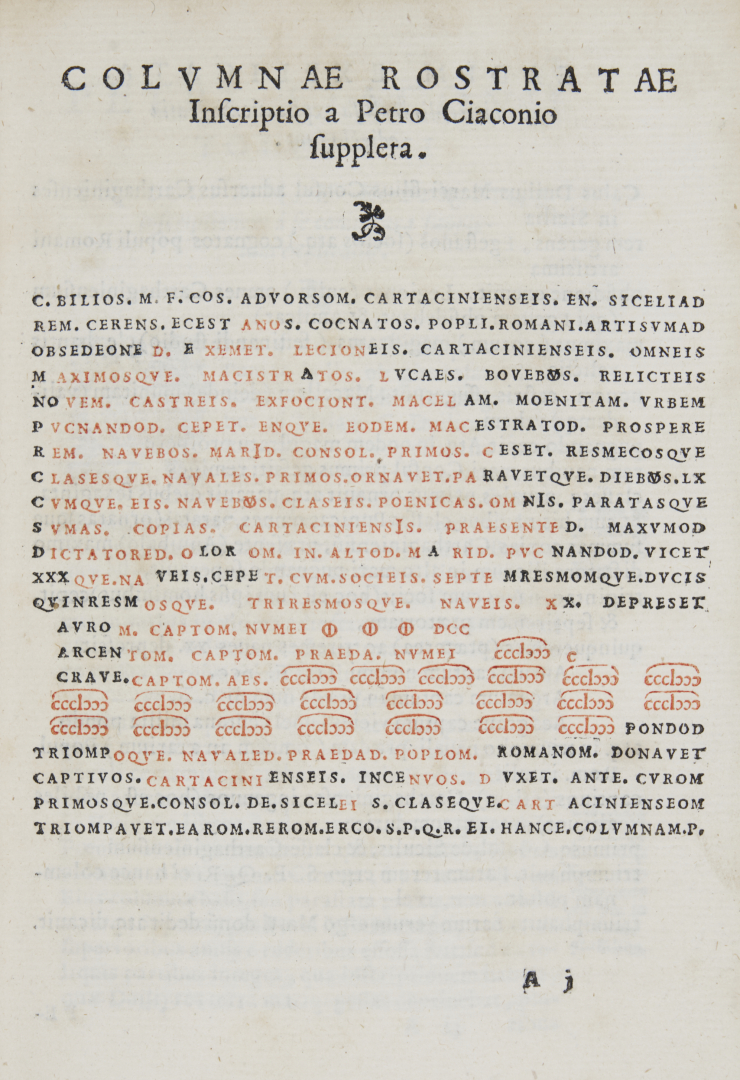 COLVMNAE ROSTRATAE
Inſcriptio a Petro Ciaconio
ſuppleta.
C. BILIOS. M. F. COS. ADVORSOM. CARTACINIENSEIS. EN. SICELIAD
REM. CERENS. ECEST ANOS. COCNATOS. POPLI. ROMANI. ARTISVMAD
OBSEDEONE D. E XEMET. LECIONEIS. CARTACINIENSEIS. OMNEIS
MAXIMOSQVE. MACISTRATOS. LVCAES. BOVEBOS. RELICTEIS
NOVEM. CASTREIS. EXFOCIONT. MACELAM. MOENITAM. VRBEM
PVCNANDOD. CEPET. ENQVE. EODEM. MACESTRATOD. PROSPERE
REM. NAVEBOS. MARID. CONSOL. PRIMOS. CESET. RESMECOSQVE
CLASESQVE. NAVALES. PRIMOS. ORNAVET. PARAVETQVE. DIEBOS. LX
CVMQVE. EIS. NAVEBOS. CLASEIS. POENICAS. OMNIS. PARATASQVE
SVMAS. COPIAS. CARTACINIENSIS. PRAESENTED. MAXVMOD
DICTATORED. OLOROM. IN. ALTOD. MARID. PVCNANDOD. VICET
XXXQVE. NAVEIS. CEPET. CVM. SOCIEIS. SEPTEMRESMOMQVE. DVCIS
QVINRESMOSQVE. TRIRESMOSQVE. NAVEIS. XX. DEPRESET
AVROM. CAPTOM. NVMEI ⅭⅠƆ ⅭⅠƆ ⅭⅠƆ DCC
ARCENTOM. CAPTOM. PRAEDA. NVMEI cccIↄↄↄ c
CRAVE. CAPTOM. AES. cccIↄↄↄ cccIↄↄↄ cccIↄↄↄ cccIↄↄↄ cccIↄↄↄ cccIↄↄↄ
cccIↄↄↄ cccIↄↄↄ cccIↄↄↄ cccIↄↄↄ cccIↄↄↄ cccIↄↄↄ cccIↄↄↄ cccIↄↄↄ
cccIↄↄↄ cccIↄↄↄ cccIↄↄↄ cccIↄↄↄ cccIↄↄↄ cccIↄↄↄ cccIↄↄↄ PONDOD
TRIOMPOQVE. NAVALED. PRAEDAD. POPLOM. ROMANOM. DONAVET
CAPTIVOS. CARTACINIENSEIS. INCENVOS. D VXET. ANTE. CVROM
PRIMOSQVE. CONSOL. DE. SICELEIS. CLASEQVE. CARTACINIENSEOM
TRIOMPAVET. EAROM. REROM. ERCO. S. P. Q. R. EI. HANCE. COLVMNAM. P.
A j